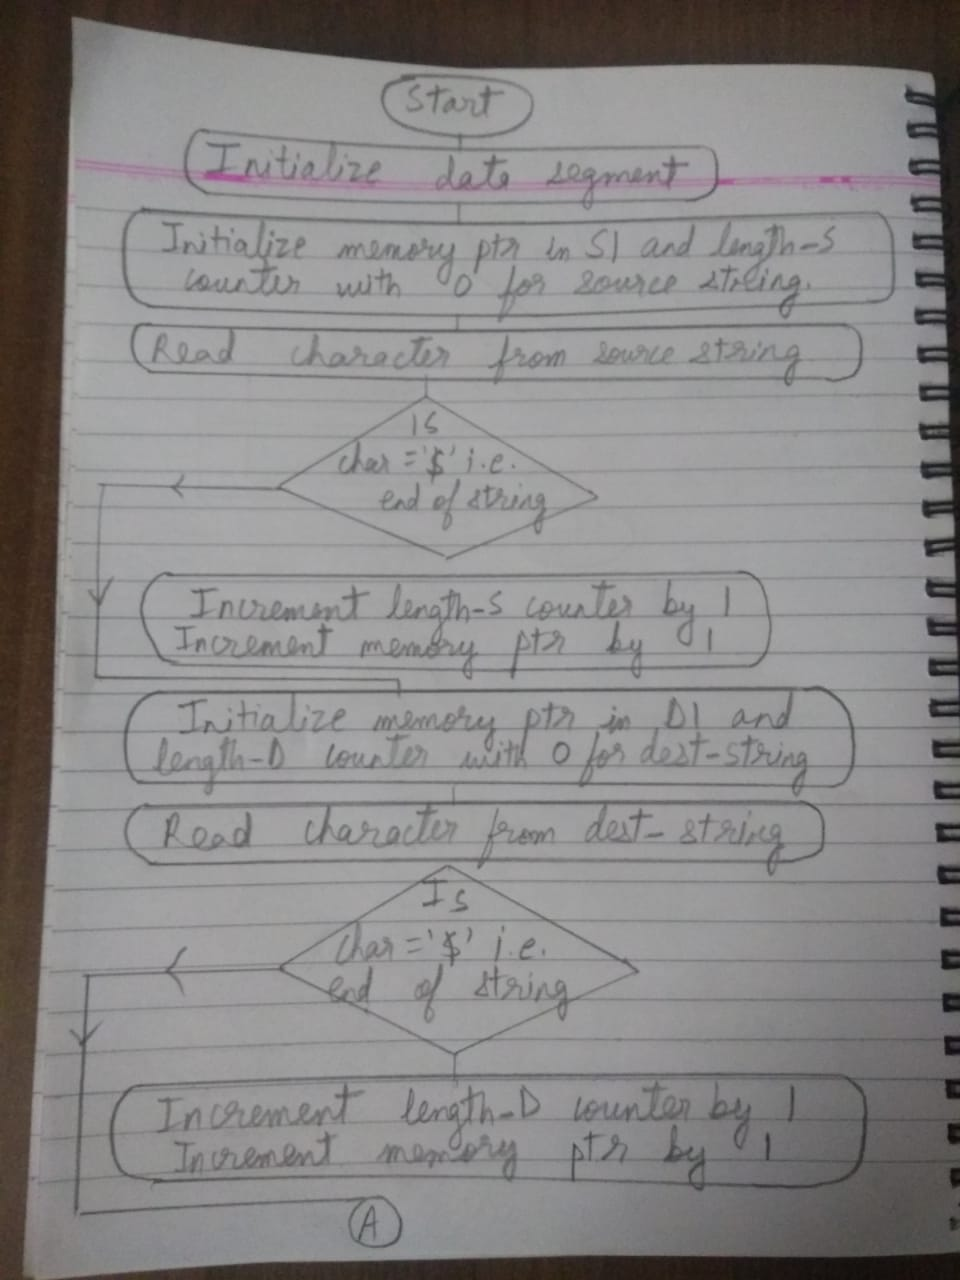 Start
Initialize data segment
Initialize memory ptr in SI and length-S
counter with 0 for source string.
Read character from source string
IS
char = '$' i.e.
end of string
Increment length-S counter by 1
Increment memory ptr by 1
Initialize memory ptr in DI and
length-D counter with 0 for dest-string
Read character from dest-string
Is
char = '$' i.e.
end of string
Increment length-D counter by 1
Increment memory ptr by 1
A